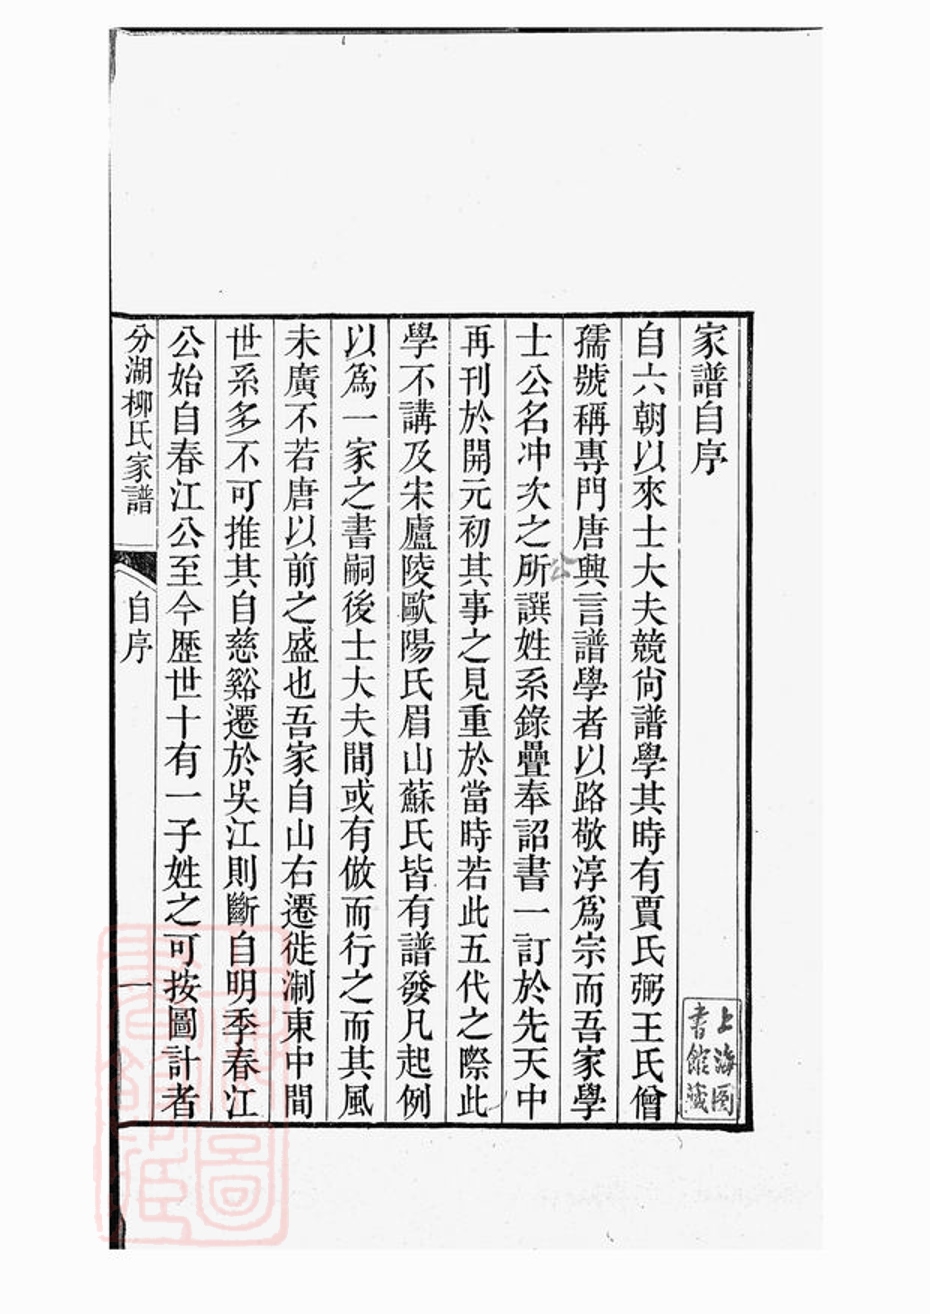 家譜自序
自六朝以來士大夫競尙譜學其時有賈氏弼王氏僧
孺號稱專門唐興言譜學者以路敬淳爲宗而吾家學
士公名冲次之所譔姓系錄疊奉詔書一訂於先天中
公
再刊於開元初其事之見重於當時若此五代之際此
學不講及宋廬陵歐陽氏眉山蘇氏皆有譜發凡起例
以爲一家之書嗣後士大夫間或有倣而行之而其風
未廣不若唐以前之盛也吾家自山右遷徙淛東中間
世系多不可推其自慈谿遷於吳江則斷自明季春江
公始自春江公至今歷世十有一子姓之可按圖計者
分湖柳氏家譜 自序 一
上海圖
書館藏